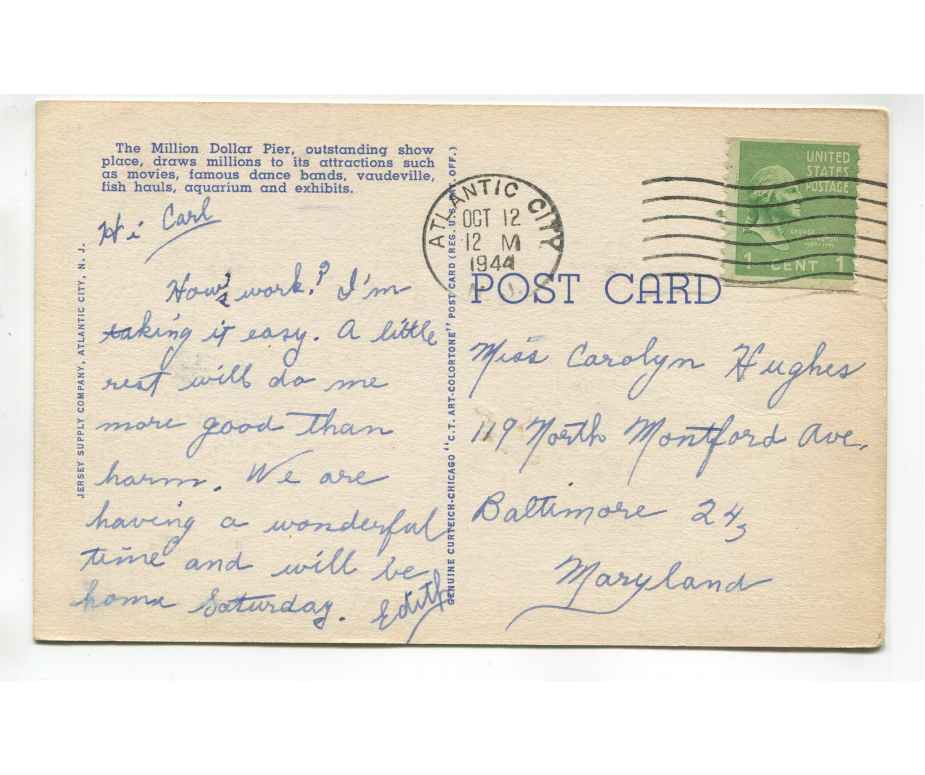 The Million Dollar Pier, outstanding show
place, draws millions to its attractions such
as movies, famous dance bands, vaudeville,
fish hauls, aquarium and exhibits.
Hi Carl
How's work? I'm
taking it easy. A little
rest will do me
more good than
harm. We are
having a wonderful
time and will be
home Saturday. Edith
JERSEY SUPPLY COMPANY, ATLANTIC CITY, N. J.
GENUINE CURTEICH-CHICAGO "C.T. ART-COLORTONE" POST CARD (REG. U.S. PAT. OFF.)
ATLANTIC CITY
OCT 12
12 M
1944
N.J.
UNITED
STATES
POSTAGE
1 CENT 1
POST CARD
Miss Carolyn Hughes
119 North Montford Ave.
Baltimore 24,
Maryland